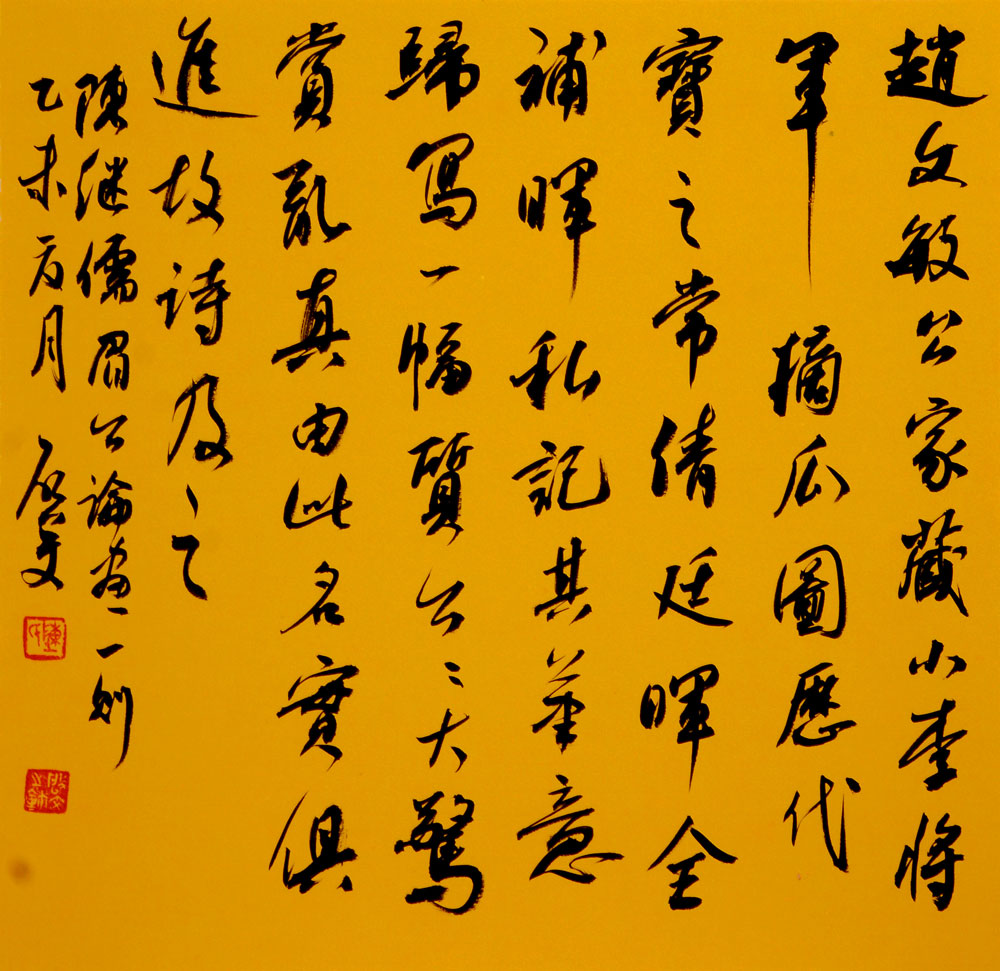 趙文敏公家藏小李將
軍摘瓜圖歷代
寶之常倩廷暉全
補暉私記其筆意
歸寫一幅質公公大驚
賞亂真由此名實俱
進故詩及及之
陳继儒眉公論畫一則
乙未六月